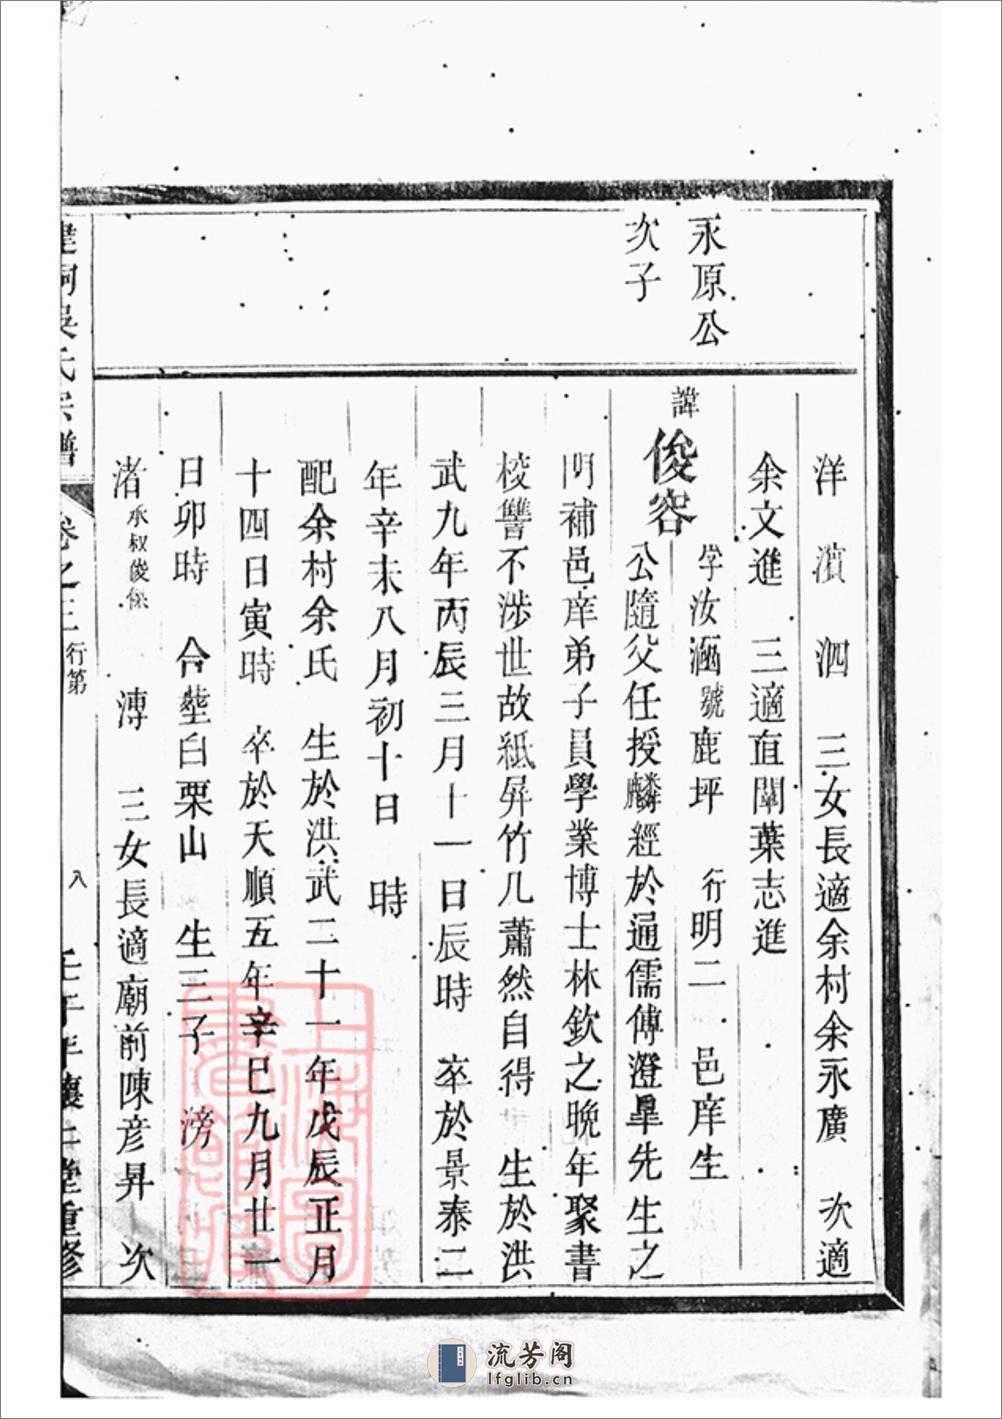 永原公
次子
洋　濱　泗　三女長適余村余永廣　次適
余文進　三適直閘葉志進
諱俊容
字汝涵號鹿坪　行明二　邑庠生
公隨父任授麟經於通儒傅澄皐先生之
門補邑庠弟子員學業博士林欽之晚年聚書
校讐不涉世故紙屏竹几蕭然自得　生於洪
武九年丙辰三月十一日辰時　卒於景泰二
年辛未八月初十日　時
配余村余氏　生於洪武二十一年戊辰正月
十四日寅時　卒於天順五年辛巳九月廿一
日卯時　合塟白栗山　生三子　滂
渚承叔俊傑　溥　三女長適廟前陳彦昇　次
吳氏宗譜　卷之三　行第　入　壬午年　堂重修
上海圖書館藏
流芳阁
lfglib.cn